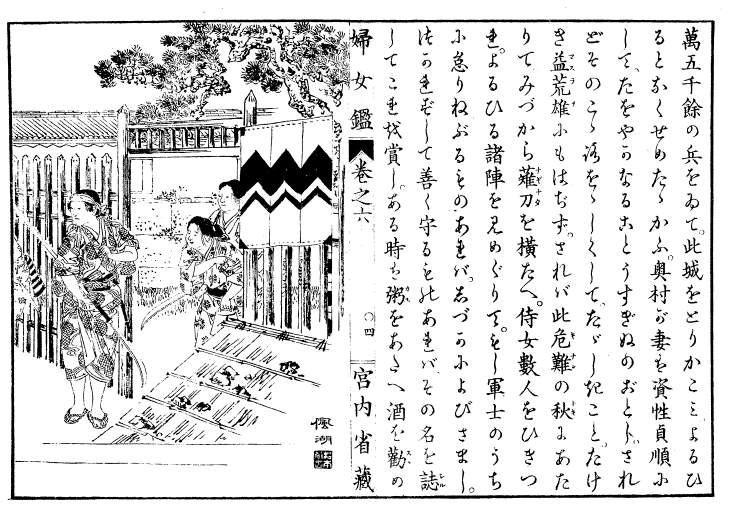 萬五千餘の兵をゐて。此城をとりかこミよるひ
るとなくせめたゝかふ。奥村が妻は資性貞順に
して。たをやかなることうすぎぬのごとし。され
どそのこゝろをゝしくして。たゞしきこと。たけ
き益荒雄にもはぢず。されバ此危難の秋にあた
りてみづから薙刀を横たへ。侍女數人をひきつ
れ。よるひる諸陣を見めぐりて。もし軍士のうち
に怠りねぶるものあれバ。しづかによびさまし。
つかれずして善く守るものあれバ。その名を誌
してこれを賞し。ある時は粥をあたへ酒を勸め
婦女鑑 卷之六 〇四 宮内省藏
楓湖